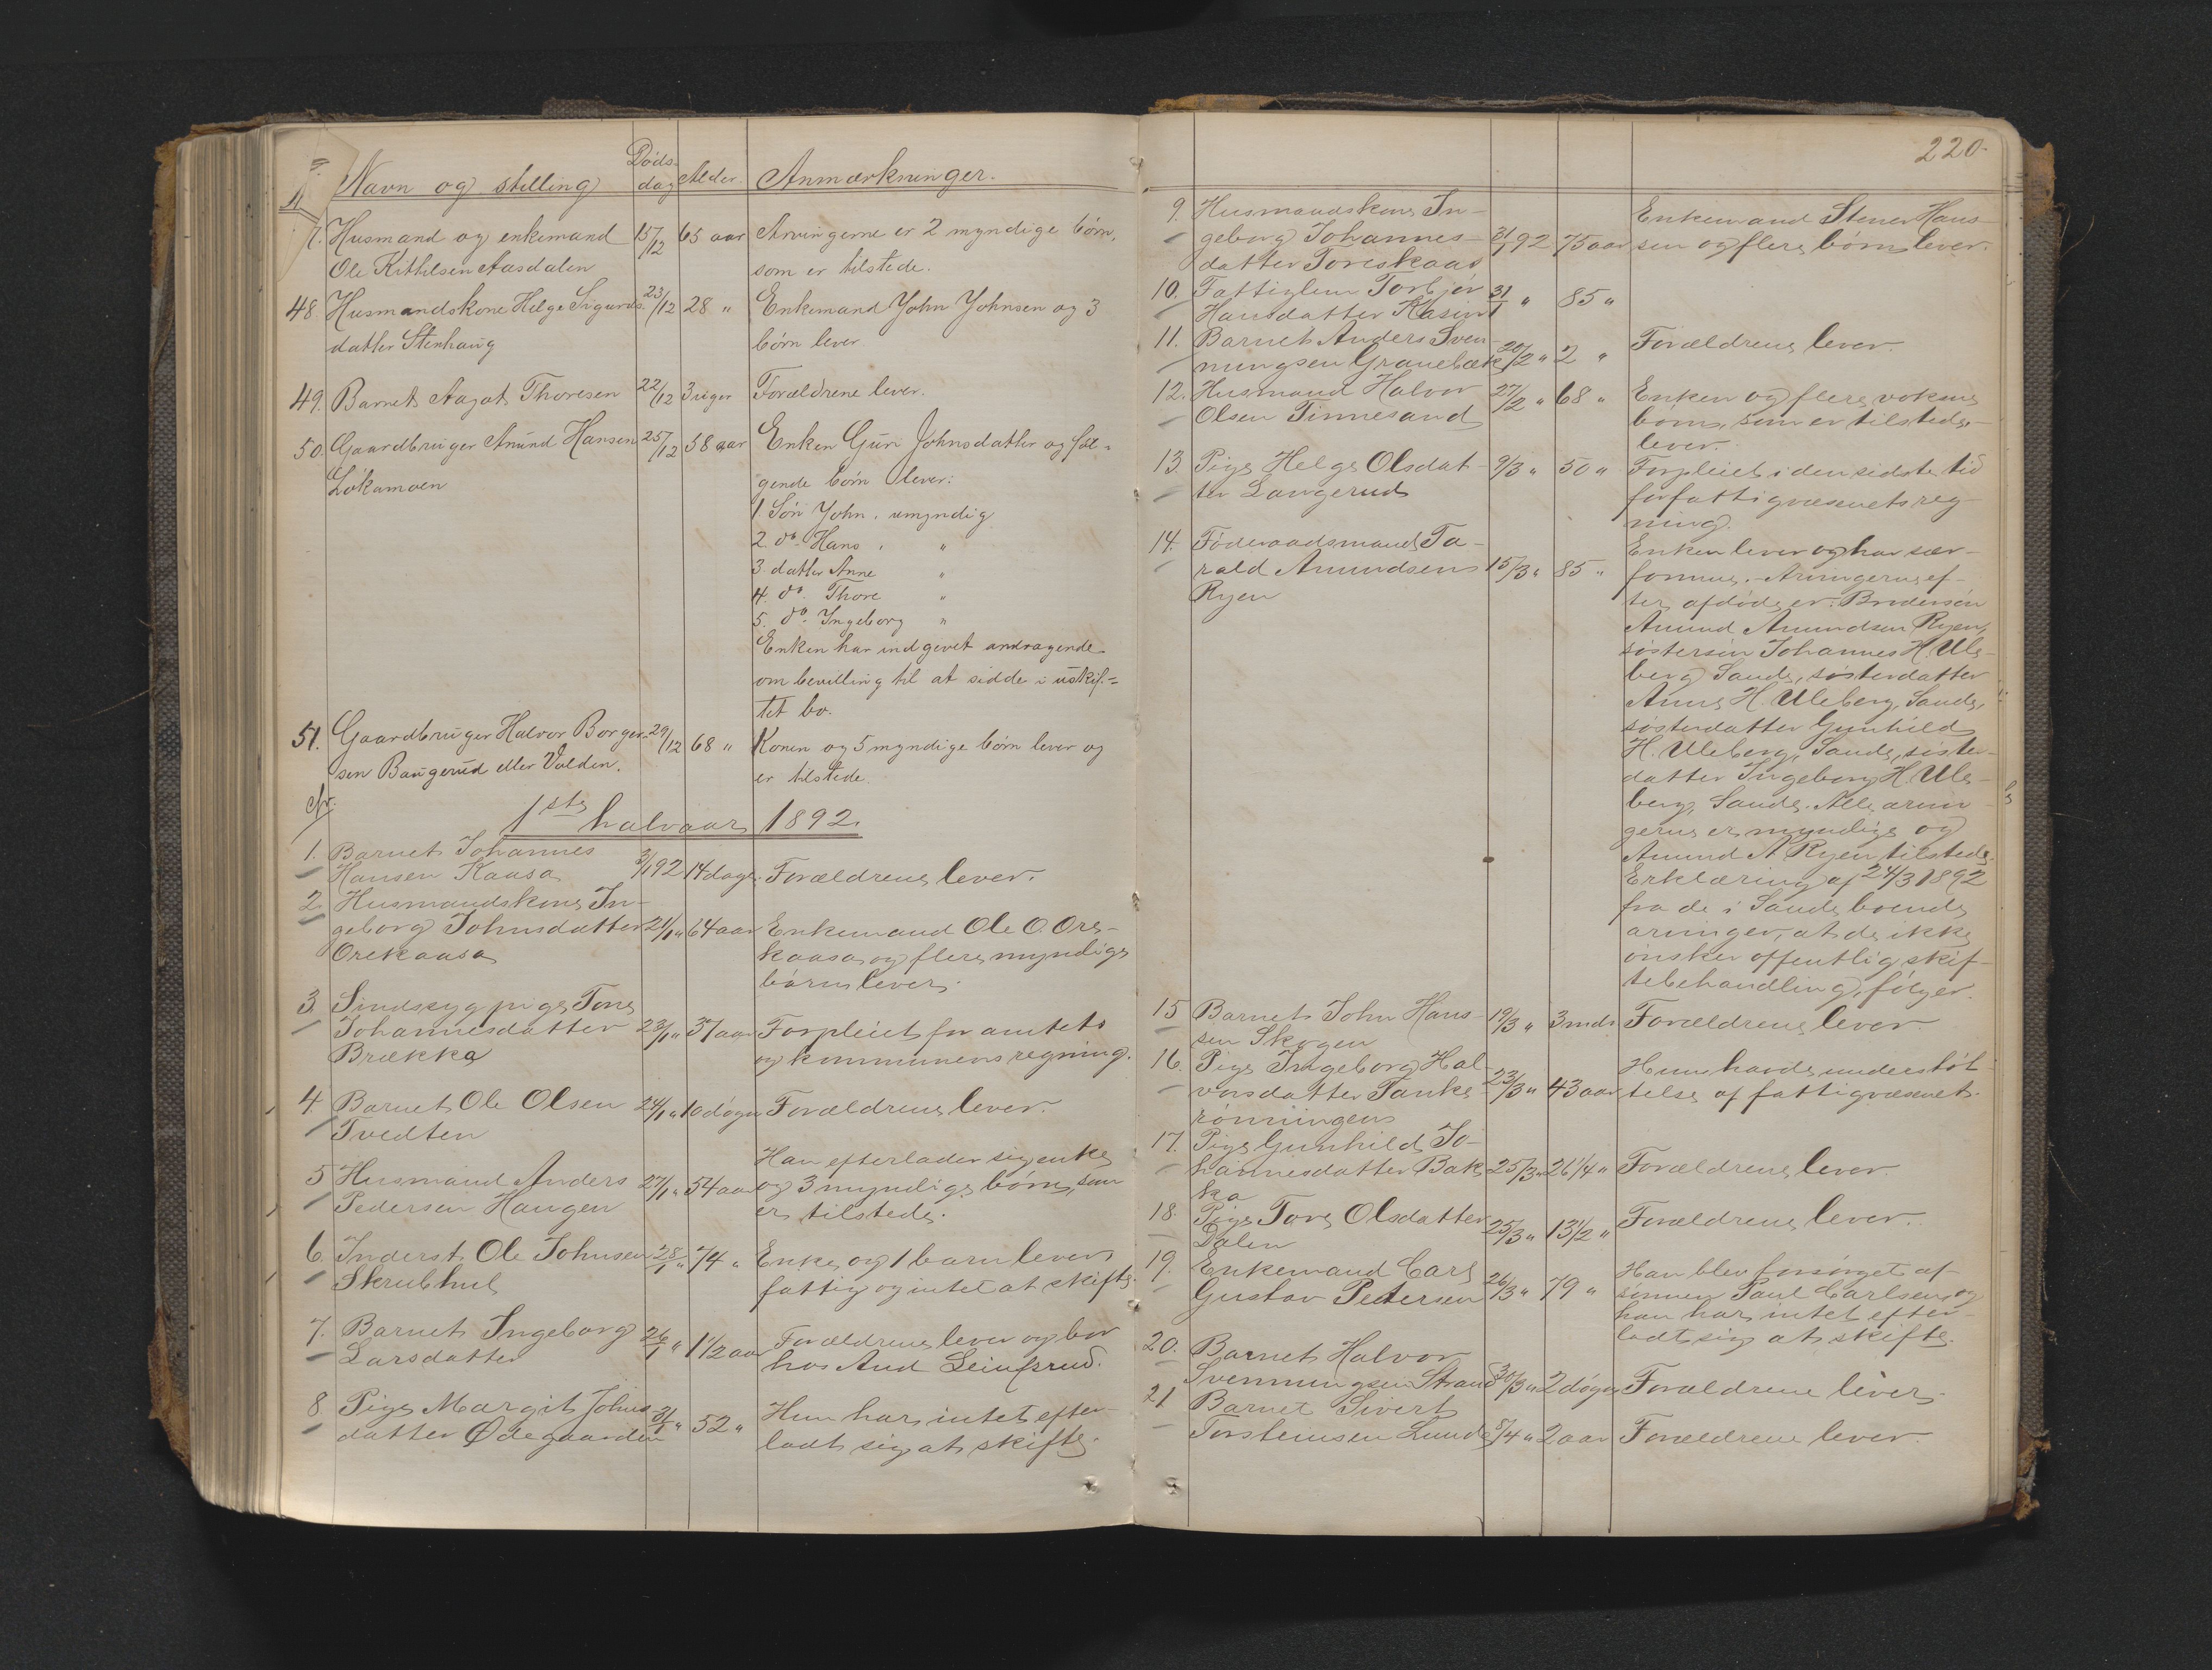 Navn og stilling Døds-dag Alder Anmærkninger.
7. Husmand og enkemand 15/12 65 aar Arvingerne er 2 myndige børn,
Ole Kithilsen Aasdalen som er tilstede.
48. Husmandskone Helge Sigurds- 23/12 28 " Enkemand John Johnsen og 3
datter Stenhaug børn lever
49. Barnet Aagot Thoresen 22/12 3 uger Forældrene lever.
50. Gaardbruger Anund Hansen 25/12 58 aar Enken Guri Johnsdatter og føl-
Lökamoen gende børn lever:
1. Søn John, umyndig
2. do. Hans, "
3. datter Anne "
4. do. Thore "
5. do. Ingeborg "
Enken har indgivet andragende
om bevilling til at sidde i uskif-
tet bo.
51. Gaardbruger Halvor Borger- 29/12 68 " Konen og 5 myndige børn lever og
sen Baugerud eller Volden. er tilstede.
Nr.
1ste halvaar 1892.
1. Barnet Johannes
Hansen Kaasa 3/1 92 14 dage. Forældrene lever.
2. Husmandskone In-
geborg Johnsdatter 21/1 " 64 aar Enkemand Ole O. Ore-
Orekaasa kaasa og flere myndige
børn lever.
3. Sindssyg pige Tone
Johannesdatter 23/1 " 37 aar Forpleiet for amtets
Brækka og kommunens regning.
4. Barnet Ole Olsen 24/1 " 10 døgn Forældrene lever.
Tvedten
Han efterlader sig enke
5 Husmand Anders 27/1 " 54 aar og 3 myndige børn, som
Pedersen Haugen er tilstede.
6. Inderst Ole Johnsen 28/1 " 74 " Enke og 1 barn lever
Skrubhul fattig og intet at skifte.
7. Barnet Ingeborg 26/1 " 1 1/2 aar Forældrene lever og bor
Larsdatter hos And
8 Pige Margit Johns- 31/1 " 52 " Hun har intet efter-
datter Ødegaarden ladt sig at skifte.
220.
9. Husmandskone In- Enkemand Stener Hans-
geborg Johannes- 31/1 92 75 aar sen og flere børn lever.
datter Toreskaas
10. Fattiglem Torbjør 31/1 " 85 "
Hansdatter Kasin
11. Barnet Anders Sven- Forældrene lever
nungsen Granebæk 20/2 " 2 "
12. Husmand Halvor 27/2 " 68 " Enken og flere voksne
Olsen Tinnesand børn, som er tilstede,
lever.
13. Pige Helge Olsdat- 9/3 " 50 " Forpleiet i den sidste tid
ter Langerud for fattigvæsenets reg-
ning.
14. Föderaadsmand Ta- Enken lever og har sær-
rald Amundsen 15/3 " 85 " formue. Arvingerne ef-
Ryen ter afdøde er: Brodersön
Amund Amundsen Ryen,
søstersön Johannes H. Ule-
berg Sande, søsterdatter
Anne H. Uleberg, Sande,
søsterdatter Gunhild
H. Uleberg, Sande, søster-
datter Ingeborg H. Ule-
berg, Sande. Alle arvin-
gerne er myndige og
Amund A. Ryen tilstede.
Erklæring af 24/3 1892
fra de i Sande boende
arvinger, at de ikke
ønsker offentlig skif-
tebehandling, følger.
15 Barnet John Hans- 19/3 " 3 mdr Forældrene lever.
sen Skogen
16. Pige Ingeborg Hal- Hun havde understøt-
vorsdatter Tanke- 23/3 " 43 aar telse af fattigvæsenet.
rønningen
17. Pige Gunhild Jo-
hannesdatter Bak- 25/3 " 26 1/4 " Forældrene lever.
ka
18. Pige Tore Olsdatter 25/3 " 13 1/2 " Forældrene lever.
Dalen
19. Enkemand Carl Han blev forsørget af
Gustav Pedersen 26/3 " 79 " sønnen Paul Carlsen, og
han har intet efter-
ladt sig at skifte.
20. Barnet Halvor
Svennungsen Strand 30/3 " 2 døgn Forældrene lever.
21 Barnet Sivert
Torsteinsen Lunde 8/4 " 2 aar Forældrene lever.